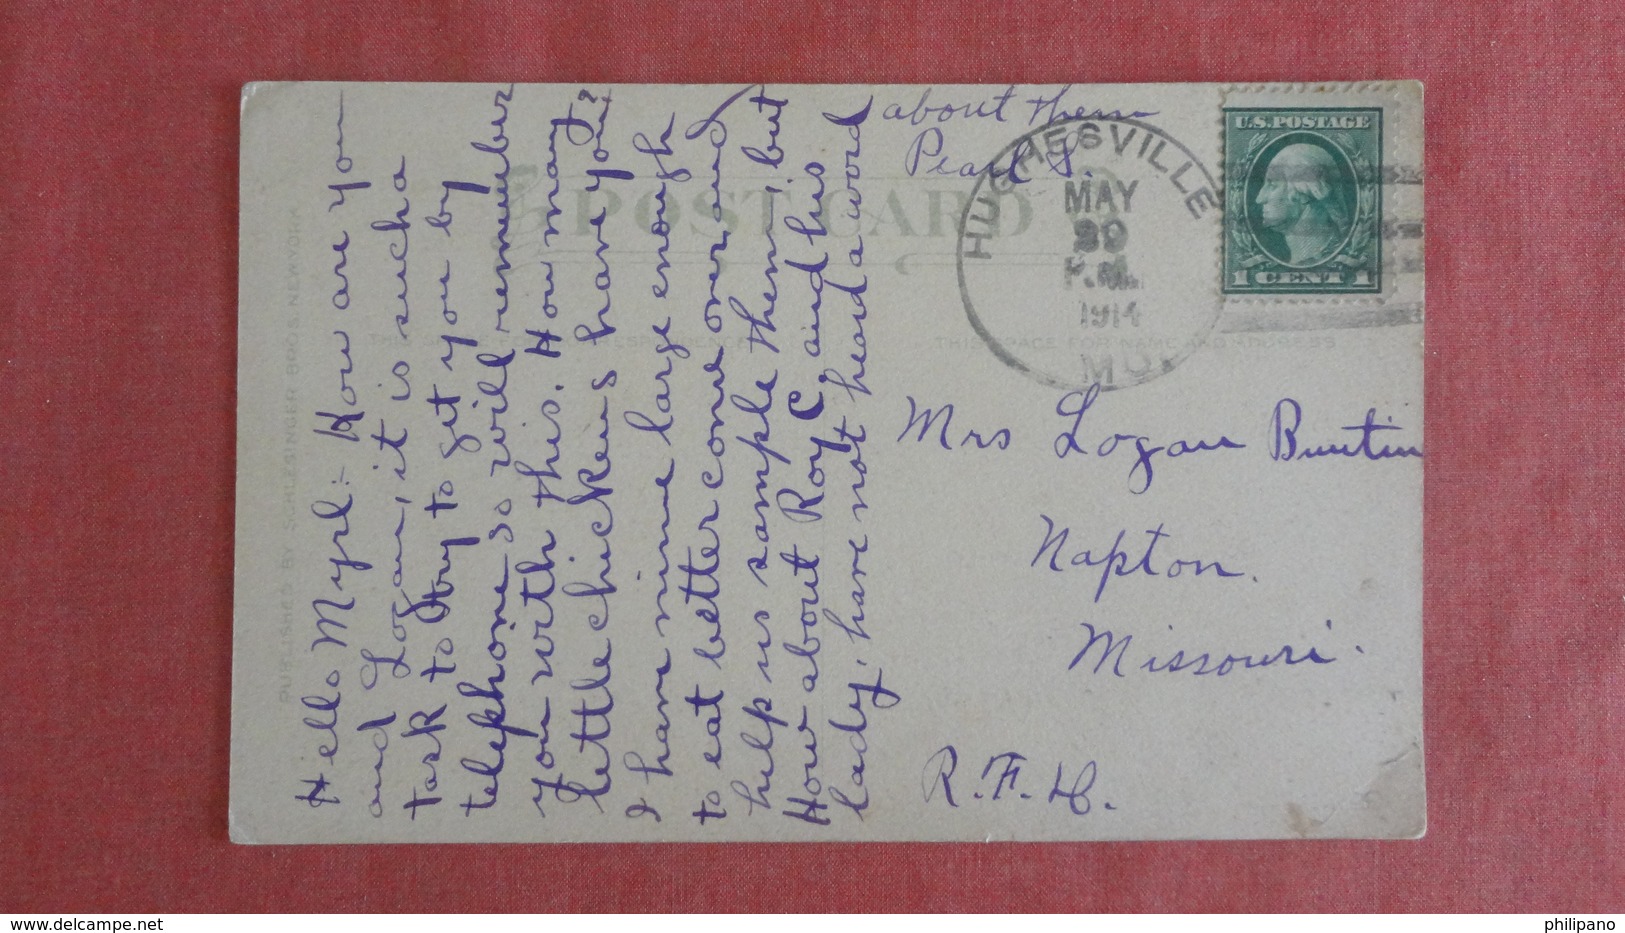 Hello Myrl:- How are you
and Logan, it is such a
task to try to get you by
telephone so will remember
you with this. How many
little chickens have you?
I have nine large enough
to eat better come over and
help us sample them, but
How about Roy C. and his
lady, have not heard a word
about them
Pearl S.
POST CARD
PUBLISHED BY SCHLESINGER BROS. NEW YORK
THIS SPACE FOR NAME AND ADDRESS
HUGHESVILLE
MAY
P.M.
1914
MO.
U.S. POSTAGE
1 CENT 1
Mrs Logan Buntin
Napton.
Missouri.
philipano
delcampe.net